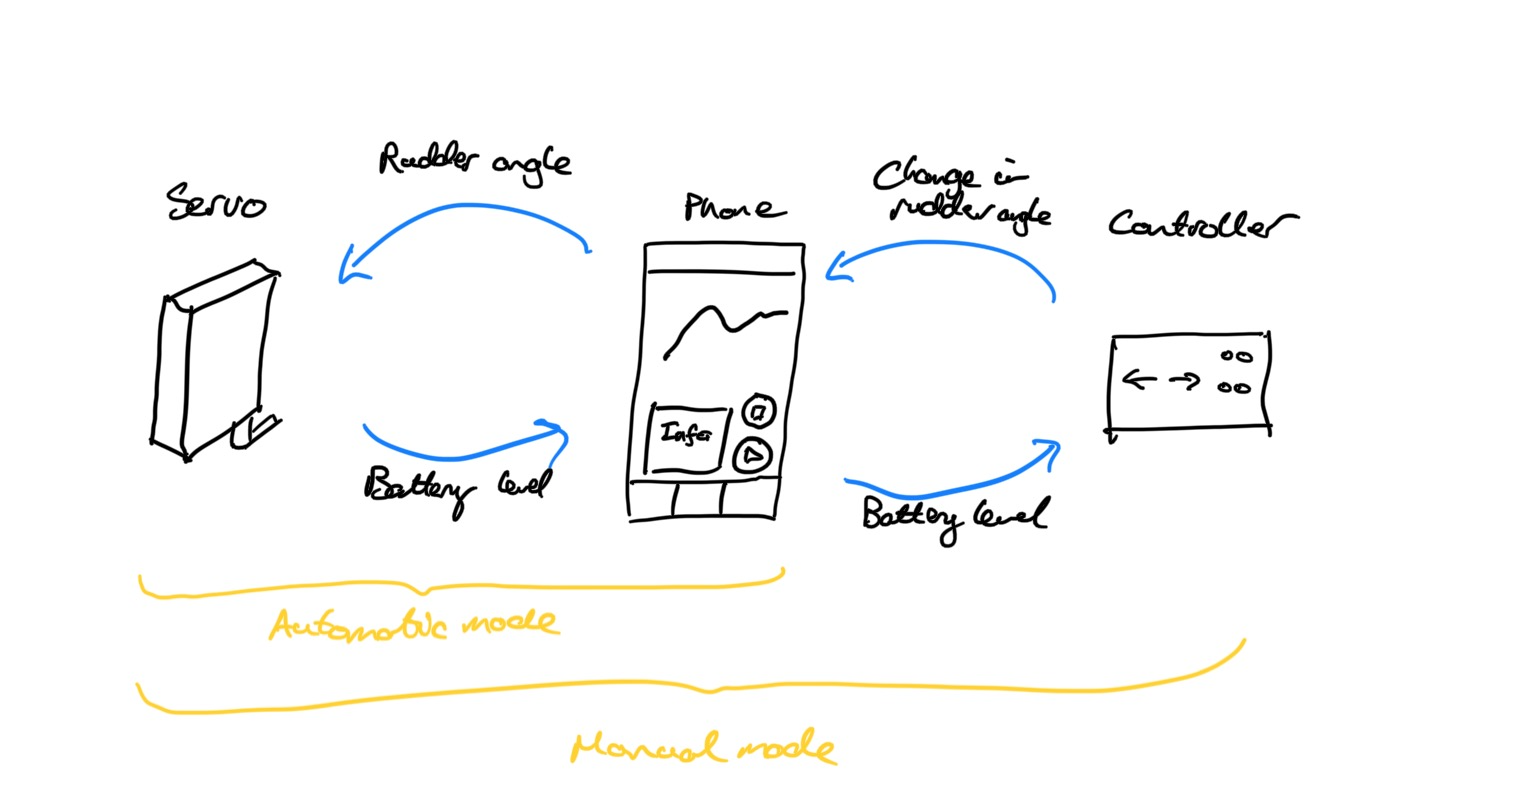 Rudder angle
Servo
Phone
Change in
rudder angle
Controller
Info
Battery level
Battery level
Automatic mode
Manual mode